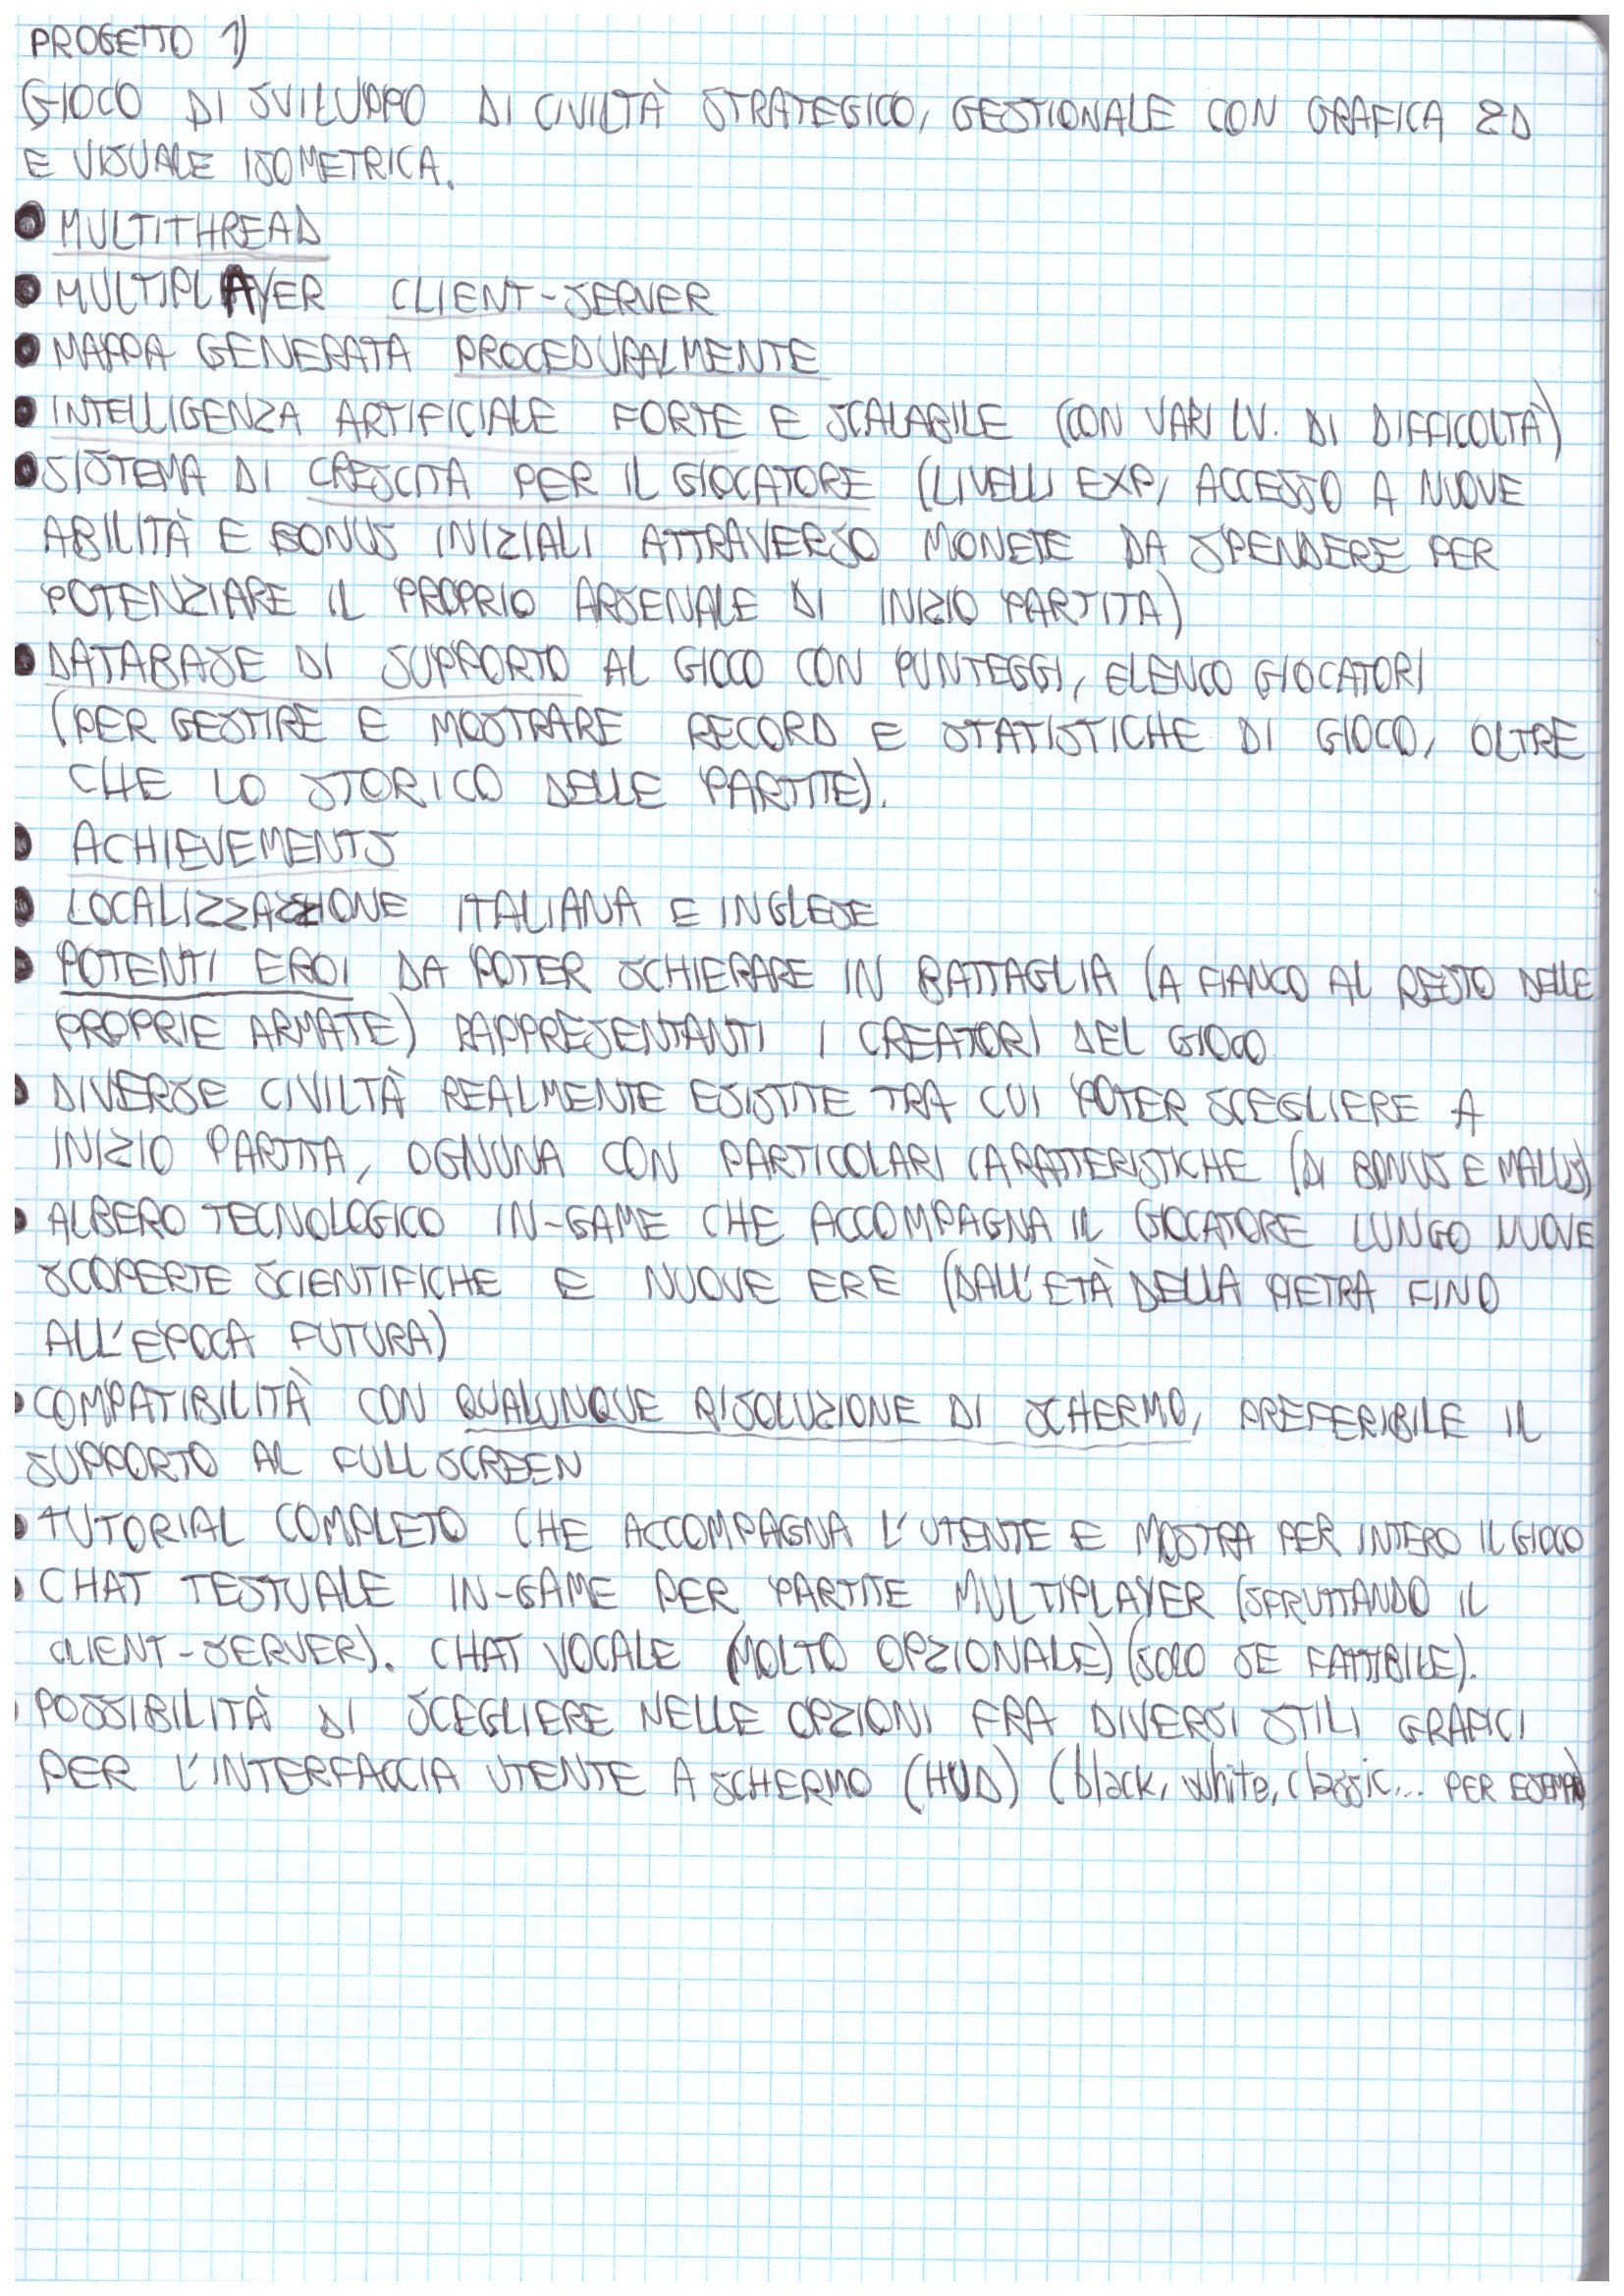 PROGETTO 1)
GIOCO DI SVILUPPO DI CIVILTÀ STRATEGICO, GESTIONALE CON GRAFICA 2D
E VISUALE ISOMETRICA.
• MULTITHREAD
• MULTIPLAYER CLIENT-SERVER
• MAPPA GENERATA PROCEDURALMENTE
• INTELLIGENZA ARTIFICIALE FORTE E SCALABILE (CON VARI LV. DI DIFFICOLTÀ)
• SISTEMA DI CRESCITA PER IL GIOCATORE (LIVELLI EXP, ACCESSO A NUOVE
ABILITÀ E BONUS INIZIALI ATTRAVERSO MONETE DA SPENDERE PER
POTENZIARE IL PROPRIO ARSENALE DI INIZIO PARTITA)
• DATABASE DI SUPPORTO AL GIOCO CON PUNTEGGI, ELENCO GIOCATORI
(PER GESTIRE E MOSTRARE RECORD E STATISTICHE DI GIOCO, OLTRE
CHE LO STORICO DELLE PARTITE).
• ACHIEVEMENTS
• LOCALIZZAZIONE ITALIANA E INGLESE
• POTENTI EROI DA POTER SCHIERARE IN BATTAGLIA (A FIANCO AL RESTO DELLE
PROPRIE ARMATE) RAPPRESENTANTI I CREATORI DEL GIOCO
• DIVERSE CIVILTÀ REALMENTE ESISTITE TRA CUI POTER SCEGLIERE A
INIZIO PARTITA, OGNUNA CON PARTICOLARI CARATTERISTICHE (DI BONUS E MALUS)
• ALBERO TECNOLOGICO IN-GAME CHE ACCOMPAGNA IL GIOCATORE LUNGO NUOVE
SCOPERTE SCIENTIFICHE E NUOVE ERE (DALL'ETÀ DELLA PIETRA FINO
ALL'EPOCA FUTURA)
• COMPATIBILITÀ CON QUALUNQUE RISOLUZIONE DI SCHERMO, PREFERIBILE IL
SUPPORTO AL FULLSCREEN
• TUTORIAL COMPLETO CHE ACCOMPAGNA L'UTENTE E MOSTRA PER INTERO IL GIOCO
• CHAT TESTUALE IN-GAME PER PARTITE MULTIPLAYER (SFRUTTANDO IL
CLIENT-SERVER). CHAT VOCALE (MOLTO OPZIONALE) (SOLO SE FATTIBILE).
• POSSIBILITÀ DI SCEGLIERE NELLE OPZIONI FRA DIVERSI STILI GRAFICI
PER L'INTERFACCIA UTENTE A SCHERMO (HUD) (black, white, classic... PER ESEMPIO)